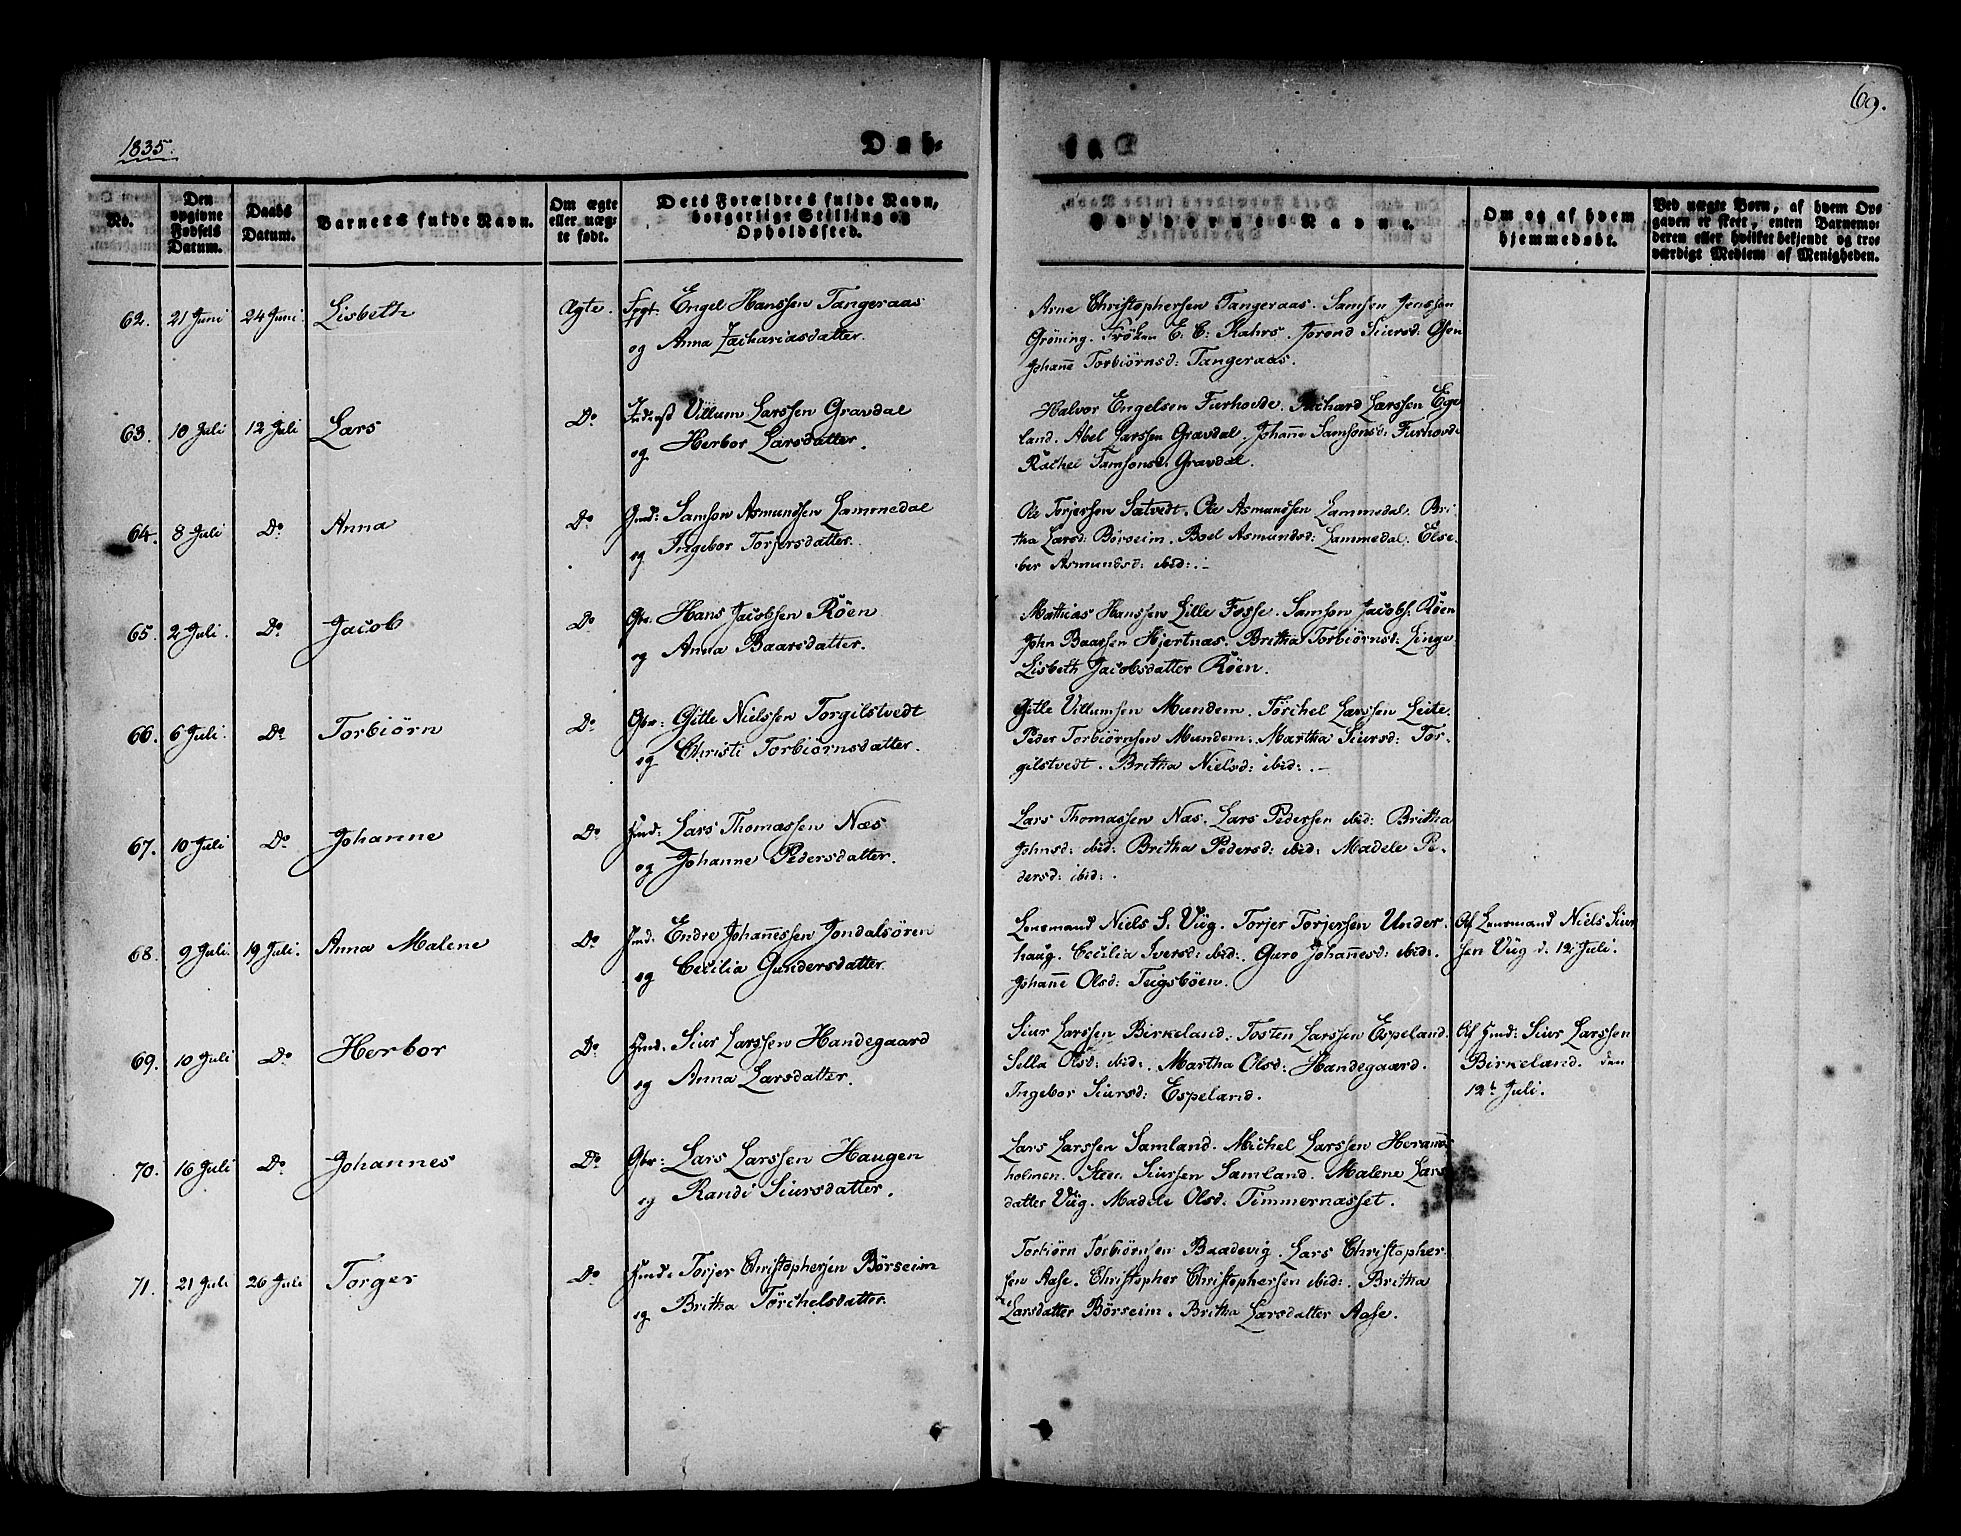 69.
1835.
Døb-
No.
Den opgivne Fødsels Datum.
Daabs Datum.
Barnets fulde Navn.
Om ægte eller uægte født.
Dets Forældres fulde Navn, borgerlige Stilling og Opholdssted.
Faddernes Navne.
Om og af hvem hjemmedøbt.
Ved uægte Børn, af hvem Opgaven er skeet, enten Barnemoderen eller hvilket bekjendt og troværdigt Medlem af Menigheden.
62. 21 Juni 24 Juni. Lisbeth Ægte. Engel Hanssen Tangeraas
og Anna Zachariasdatter.
Arne Christophersen Tangeraas. Samsen Jenssen
Gröning. Fröken E. C. Kahrs. Jorond Siursd: Osen
Johañe Torbiörnsd: Tangeraas.
63. 10 Juli 12 Juli Lars Do Inderst Villum Larssen Gravdal
og Herbor Larsdatter.
Halvor Engelsen Furhovde. Richard Larssen Eige
land. Abel Larssen Gravdal. Johañe Samsonsd: Furhovde
Rachel Samsonsd: Gravdal.
64. 8 Juli Do Anna Do Hmd: Samson Asmundsen Lammedal
og Ingebor Torjersdatter.
Ole Torjersen Sætvedt. Ole Asmundsen Lammedal. Bri-
tha Larsd: Börseim. Boel Asmundsd: Lammedal. Else-
ber Asmundsd: ibid:.-
65. 2 Juli. Do Jacob Do Gbr. Hans Jacobsen Röen
og Anna Baarsdatter.
Mathias Hanssen Lille Fosse. Samson Jacobs: Röen
John Baarsen Hjertnæs. Britha Torbiörnsd: Linge
Lisbeth Jacobsdatter Röen.
66. 6 Juli. Do Torbiörn Do Gbr: Gitle Nielssen Torgilstvedt
og Christi Torbiörnsdatter.
Gitle Villumsen Mundem. Törchel Larssen Leite.
Peder Torbiörnsen Mundem. Martha Siursd: Tor-
gilstvedt. Britha Nielsd: ibid:.-
67. 10 Juli Do Johanne Do Hmd: Lars Thomassen Næs
og Johanne Pedersdatter.
Lars Thomassen Næs. Lars Pedersen ibid: Britha
Johnsd: ibid: Britha Pedersd: ibid: Madele Pe-
dersd: ibid:.
68. 9 Juli. 19 Juli. Anna Malene Do Hmd: Endre Johañessen Jondalsören
og Cecilia Gundersdatter.
Lensmand Niels S. Viig. Torjer Torjersen Under-
haug. Cecilia Iversd: ibid:. Guro Johañesd: ibid:.
Johañe Olsd: Teigsböen.
Af Lensmand Niels Siur
sen Viig d. 12 Juli.
69. 10 Juli Do Herbor Do Hmd. Siur Larssen Handegaard
og Anna Larsdatter.
Siur Larssen Birkeland. Tosten Larssen Espeland.
Sella Olsd: ibid:. Martha Olsd: Handegaard.
Ingebor Siursd: Espeland.
Af Hmd: Siur Larssen
Birkeland. den
12t Juli.
70. 16 Juli Do Johannes Do Gbr: Lars Larssen Haugen
og Randi Siursdatter.
Lars Larssen Samland. Michel Larssen Herañs
holmen. Siurssen Samland. Malene Lars
datter Viig. Madele Olsd: Timmernæsset.
71. 21 Juli 26 Juli Torger Do Hmd: Torjer Christophersen Börseim
og Britha Törchelsdatter.
Torbiörn Torbiörnsen Baadevig. Lars Christopher-
sen Aase. Christopher Christophersen ibid:. Britha
Larsdatter Börseim. Britha Larsdatter Aase.